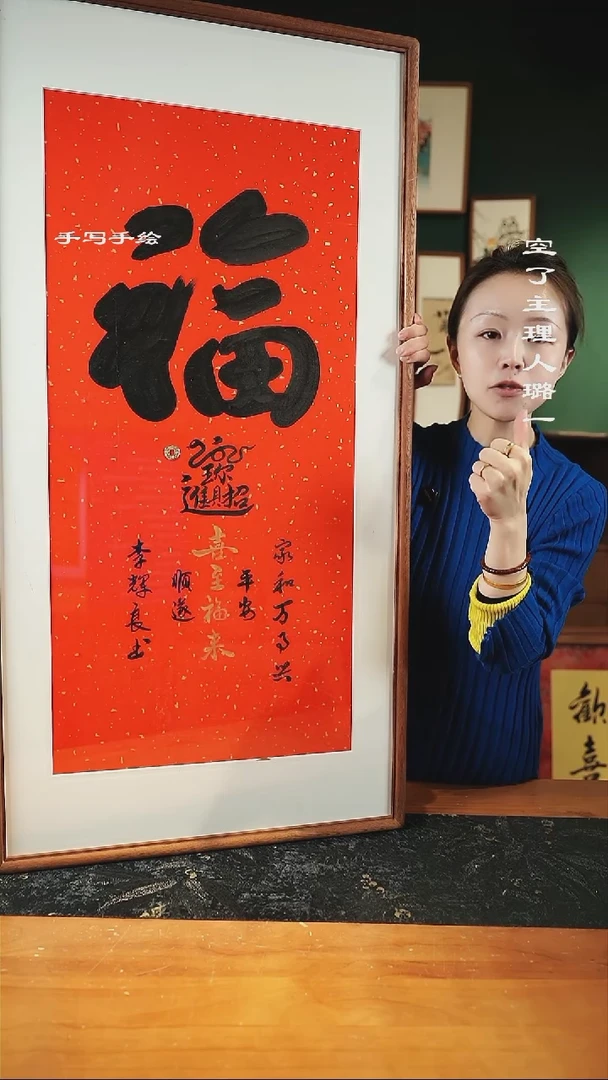 福
手写手绘
空了主理人璐一
招財進寶
家和万事兴
平安
喜至福来
顺遂
李輝良书
歡喜